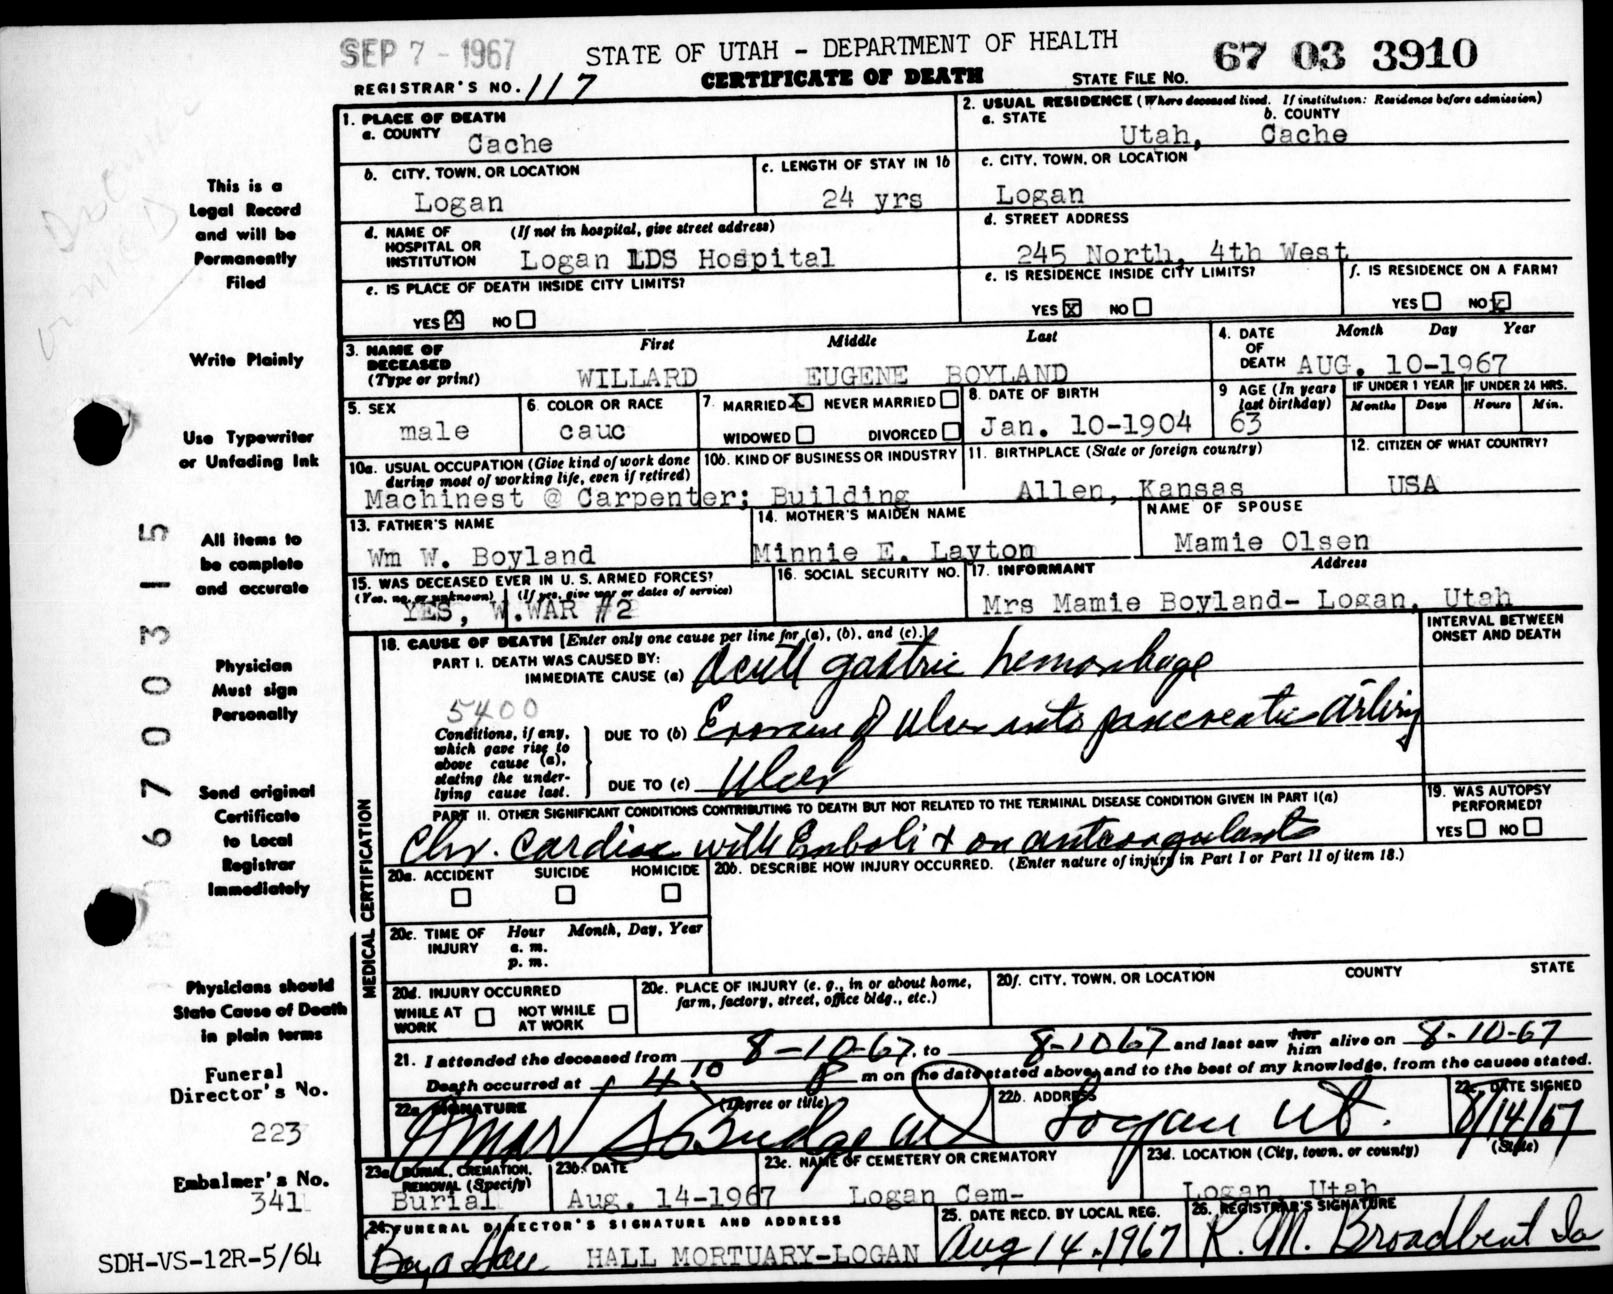 SEP 7 - 1967
STATE OF UTAH - DEPARTMENT OF HEALTH
67 03 3910
REGISTRAR'S NO. 117
CERTIFICATE OF DEATH
STATE FILE NO.
1. PLACE OF DEATH
a. COUNTY
Cache
2. USUAL RESIDENCE (Where deceased lived. If institution: Residence before admission)
a. STATE
b. COUNTY
Utah, Cache
b. CITY, TOWN, OR LOCATION
Logan
c. LENGTH OF STAY IN 1b
24 yrs
c. CITY, TOWN, OR LOCATION
Logan
d. NAME OF HOSPITAL OR INSTITUTION
(If not in hospital, give street address)
Logan LDS Hospital
d. STREET ADDRESS
245 North, 4th West
e. IS PLACE OF DEATH INSIDE CITY LIMITS?
YES X NO
e. IS RESIDENCE INSIDE CITY LIMITS?
YES X NO
f. IS RESIDENCE ON A FARM?
YES NO X
3. NAME OF DECEASED (Type or print)
First Middle Last
WILLARD EUGENE BOYLAND
4. DATE OF DEATH
Month Day Year
AUG. 10-1967
5. SEX
male
6. COLOR OR RACE
cauc
7. MARRIED X NEVER MARRIED
WIDOWED DIVORCED
8. DATE OF BIRTH
Jan. 10-1904
9 AGE (In years last birthday)
63
IF UNDER 1 YEAR
Months Days
IF UNDER 24 HRS.
Hours Min.
10a. USUAL OCCUPATION (Give kind of work done during most of working life, even if retired)
10b. KIND OF BUSINESS OR INDUSTRY
Machinest @ Carpenter; Building
11. BIRTHPLACE (State or foreign country)
Allen, Kansas
12. CITIZEN OF WHAT COUNTRY?
USA
13. FATHER'S NAME
Wm W. Boyland
14. MOTHER'S MAIDEN NAME
Minnie E. Layton
NAME OF SPOUSE
Mamie Olsen
15. WAS DECEASED EVER IN U. S. ARMED FORCES?
(Yes, no, or unknown) (If yes, give war or dates of service)
YES, W.WAR #2
16. SOCIAL SECURITY NO.
17. INFORMANT Address
Mrs Mamie Boyland- Logan, Utah
MEDICAL CERTIFICATION
18. CAUSE OF DEATH [Enter only one cause per line for (a), (b), and (c).]
INTERVAL BETWEEN ONSET AND DEATH
PART I. DEATH WAS CAUSED BY:
IMMEDIATE CAUSE (a) Acute gastric hemorrhage
5400
Conditions, if any, which gave rise to above cause (a), stating the underlying cause last.
DUE TO (b) Erosion of Ulcer into pancreatic artery
DUE TO (c) Ulcer
PART II. OTHER SIGNIFICANT CONDITIONS CONTRIBUTING TO DEATH BUT NOT RELATED TO THE TERMINAL DISEASE CONDITION GIVEN IN PART I(a)
Chr. cardiac with Emboli & on anticoagulants
19. WAS AUTOPSY PERFORMED?
YES NO
20a. ACCIDENT SUICIDE HOMICIDE
20b. DESCRIBE HOW INJURY OCCURRED. (Enter nature of injury in Part I or Part II of item 18.)
20c. TIME OF INJURY
Hour Month, Day, Year
a. m.
p. m.
20d. INJURY OCCURRED
WHILE AT WORK NOT WHILE AT WORK
20e. PLACE OF INJURY (e. g., in or about home, farm, factory, street, office bldg., etc.)
20f. CITY, TOWN, OR LOCATION COUNTY STATE
21. I attended the deceased from 8-10-67, to 8-10 67 and last saw her him alive on 8-10-67
Death occurred at 4 10 P m on the date stated above; and to the best of my knowledge, from the causes stated.
22a. SIGNATURE (Degree or title)
Omar S Budge MD
22b. ADDRESS
Logan Ut.
22c. DATE SIGNED
8/14/67
23a. BURIAL, CREMATION, REMOVAL (Specify)
Burial
23b. DATE
Aug. 14-1967
23c. NAME OF CEMETERY OR CREMATORY
Logan Cem-
23d. LOCATION (City, town, or county) (State)
Logan Utah
24. FUNERAL DIRECTOR'S SIGNATURE AND ADDRESS
HALL MORTUARY-LOGAN
25. DATE RECD. BY LOCAL REG.
Aug 14-1967
26. REGISTRAR'S SIGNATURE
R. M. Broadbent
This is a
Legal Record
and will be
Permanently
Filed
Write Plainly
Use Typewriter
or Unfading Ink
All items to
be complete
and accurate
Physician
Must sign
Personally
Send original
Certificate
to Local
Registrar
Immediately
Physicians should
State Cause of Death
in plain terms
Funeral
Director's No.
223
Embalmer's No.
341
SDH-VS-12R-5/64
67 00315